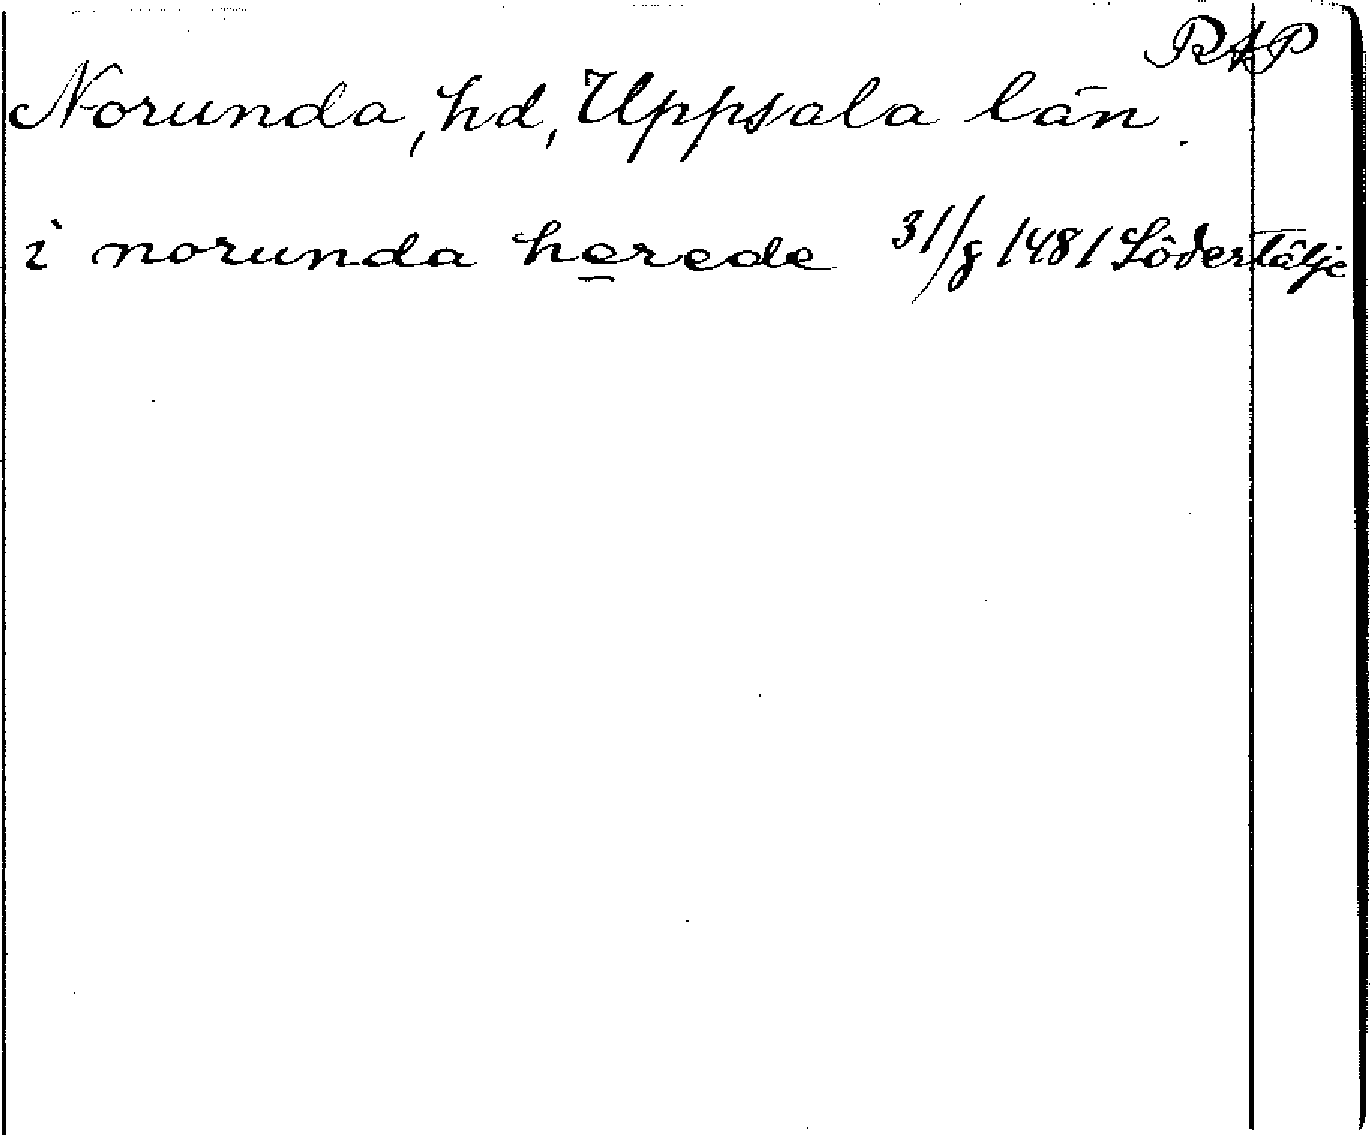 RAP
Norunda, hd, Uppsala län.
i norunda herede 31/8 1481 Södertälje